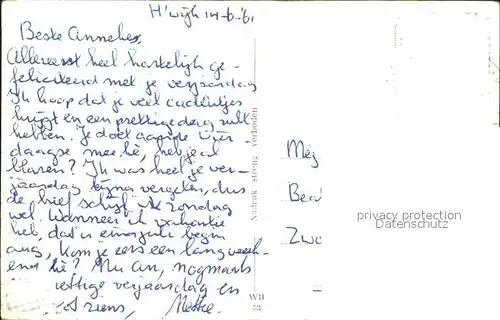 H'wijk 14-6-'61
Beste Annehes,
Allereerst heel hartelijk ge-
feliciteerd met je verjaardag
Ik hoop dat je veel cadeautjes
krijgt en een prettige dag zult
hebben. Je doet aan de Vier-
daagse mee hè, heb je al
blaren? Ik was heel je ver-
jaardag bijna vergeten, dus
de brief schijf ik zondag
wel. Wanneer ik vakantie
heb, dat is eind juli begin
aug, kom je eens een lang week-
end hè? Nu An, nogmaals
prettige verjaardag en
tot ziens, Nettie.
Nadruk streng verboden
WH
53
Mej
Zwo
privacy protection
Datenschutz